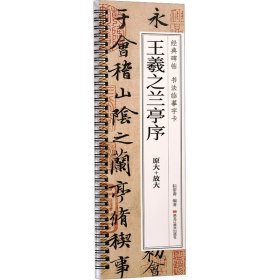 永
于會稽山陰之蘭亭脩稧事
经典碑帖 书法临摹字卡
王羲之兰亭序
原大+放大
编著